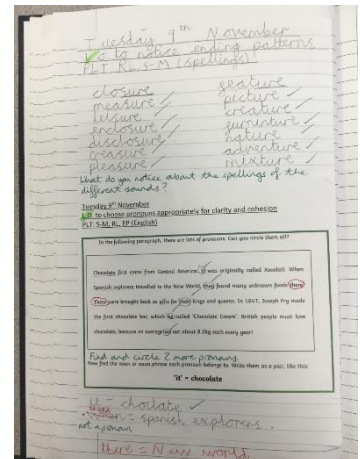 Tuesday 9th November
LO to notice ending patterns
PLT: RL, S-M (spellings)
closure geature
measure picture
leisure creature
enclosure furninture
disclosure nature
treasure adventure
pleasure mixture
What do you notice about the spellings of the
different sounds?
Tuesday 9th November
L.O. to choose pronouns appropriately for clarity and cohesion
PLT: S-M, RL, EP (English)
In the following paragraph, there are lots of pronouns. Can you circle them all?
Chocolate first came from Central America. It was originally called Xocolatl. When
Spanish explorers travelled to the New World, they found many unknown foods there.
These were brought back as gifts for their kings and queens. In 1847, Joseph Fry made
the first chocolate bar, which he called 'Chocolate Cream'. British people must love
chocolate, because on average eat about 8.5kg each every year!
Find and circle 2 more pronouns.
Now find the noun or noun phrase each pronoun belongs to. Write them as a pair, like this:
'it' = chocolate
it = choclate
= spanish explorers.
not a pronoun
there = New world